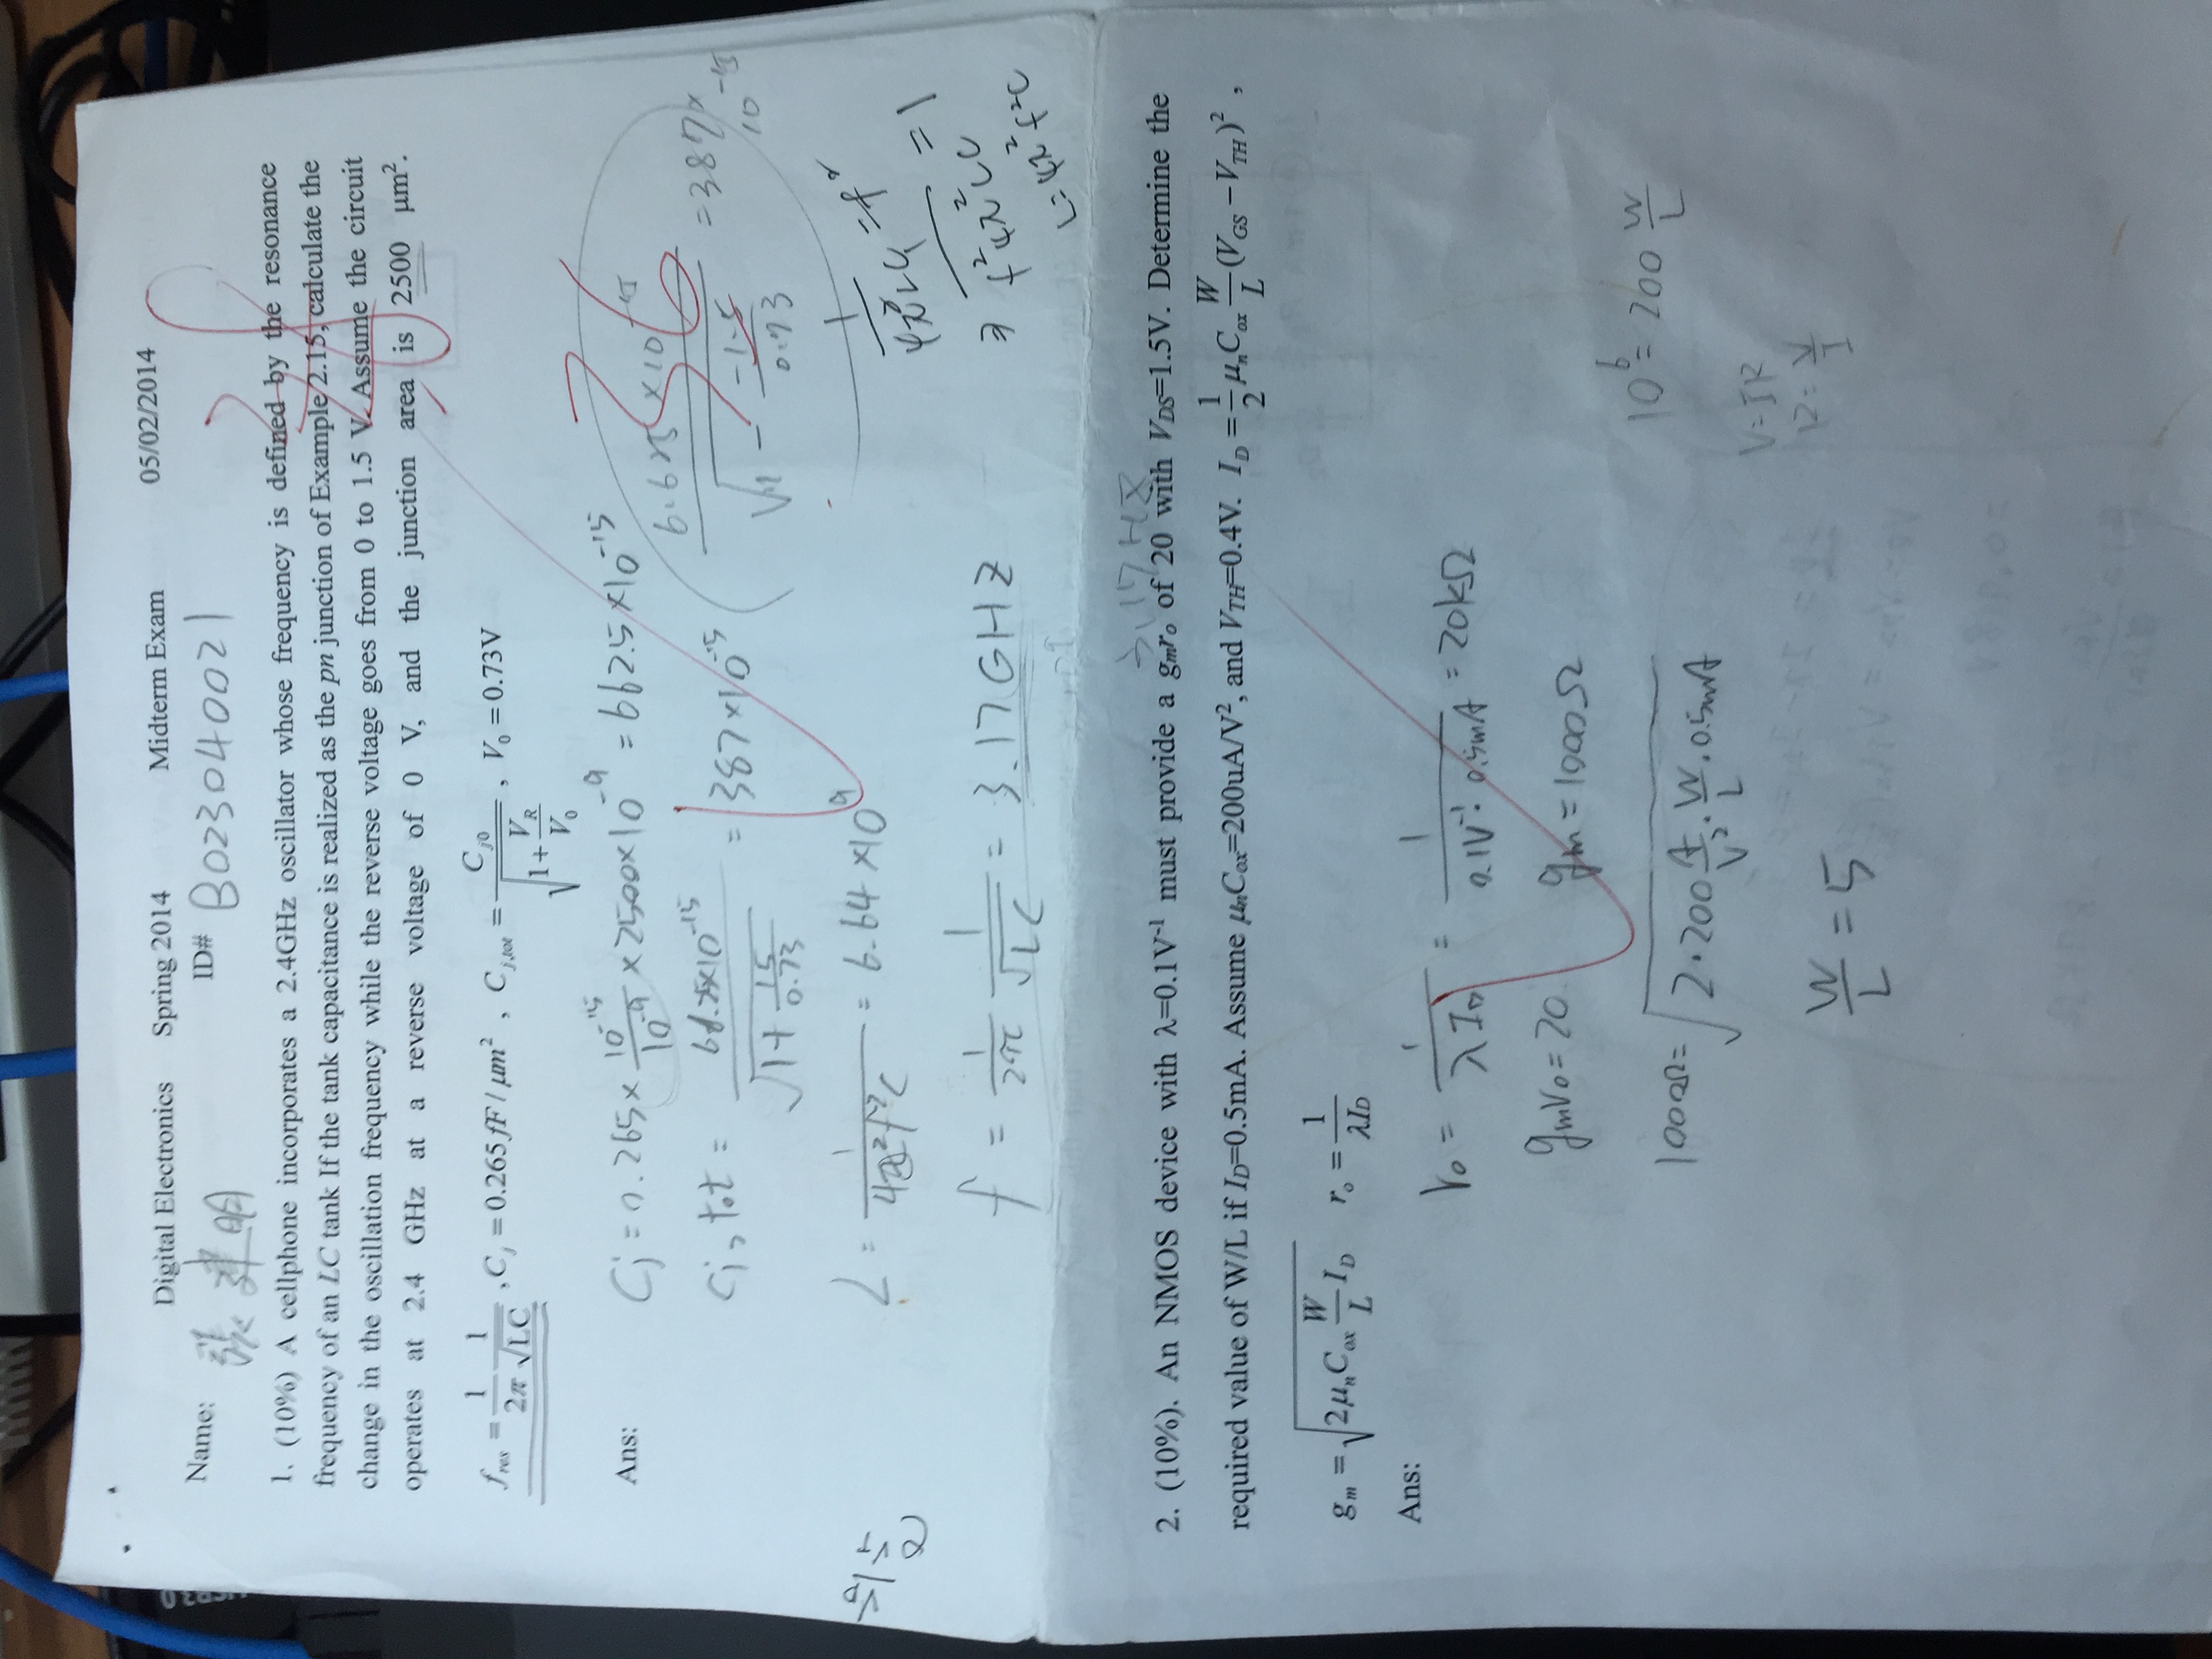 Digital Electronics Spring 2014 Midterm Exam 05/02/2014
Name: 張建明 ID# B023040021
38
1. (10%) A cellphone incorporates a 2.4GHz oscillator whose frequency is defined by the resonance
frequency of an LC tank If the tank capacitance is realized as the pn junction of Example 2.15, calculate the
change in the oscillation frequency while the reverse voltage goes from 0 to 1.5 V. Assume the circuit
operates at 2.4 GHz at a reverse voltage of 0 V, and the junction area is 2500 μm².
f_res = 1/2π 1/√LC , C_j = 0.265 fF / μm² , C_j,tot = C_j0 / √(1 + V_R/V_0) , V_0 = 0.73V
Ans: Cj = 0.265 × 10^-15/10^-9 × 2500×10^-9 = 662.5×10^-15
36
6.625 ×10^-15 / √(1 - -1.5/0.73) = 387×10^-15
Cj,tot = 10^-15 / √(1+ 1.5/0.73) = 387×10^-15
L = 1/4π²f²C = 6.64 ×10^9
VD/VT
e
1/4π²LC = f²
⇒ 1/f²4π²LC = 1
L = 4π²f²C
f = 1/2π 1/√LC = 3.17GHZ
3.17HZ
2. (10%). An NMOS device with λ=0.1V⁻¹ must provide a g_m r_o of 20 with V_DS=1.5V. Determine the
required value of W/L if I_D=0.5mA. Assume μ_nC_ox=200uA/V², and V_TH=0.4V. I_D = 1/2 μ_n C_ox W/L (V_GS − V_TH)² ,
g_m = √(2μ_n C_ox W/L I_D) r_o = 1/λI_D
Ans:
ro = 1/λI_D = 1/(0.1V⁻¹ · 0.5mA) = 20kΩ
gmro = 20 gm = 1000Ω
1000Ω = √(2·200 A/V² · W/L · 0.5mA)
10^6 = 200 W/L
V=IR
R= V/I
W/L = 5